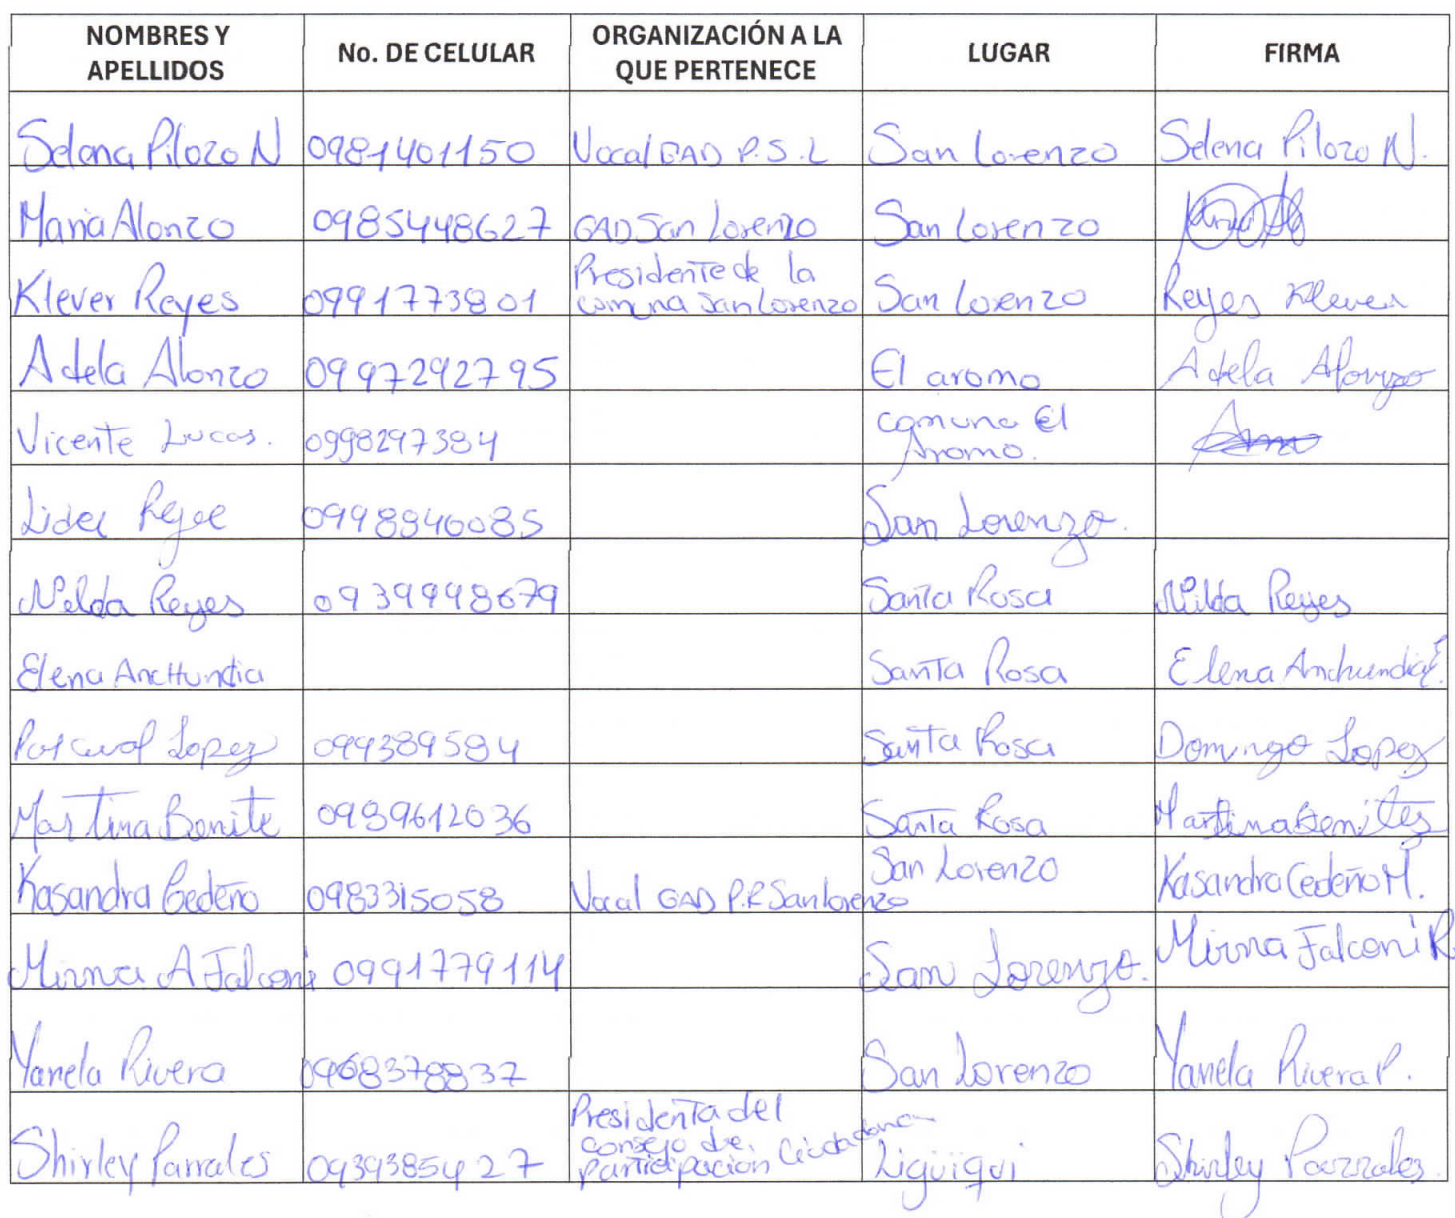 NOMBRES Y APELLIDOS | No. DE CELULAR | ORGANIZACIÓN A LA QUE PERTENECE | LUGAR | FIRMA
Selena Pilozo N | 0981401150 | Vocal GAD P.S.L | San Lorenzo | Selena Pilozo N.
Maria Alonzo | 0985448627 | GAD San Lorenzo | San Lorenzo |
Klever Reyes | 0991773801 | Presidente de la comuna San Lorenzo | San Lorenzo | Reyes Klever
Adela Alonzo | 0997292795 | | El aromo | Adela Alonzo
Vicente Lucas. | 0998297384 | | comuna El Aromo. |
Lider | 0998840085 | | San Lorenzo. |
Nilda Reyes | 0939998679 | | Santa Rosa | Nilda Reyes
Elena AncHundia | | | Santa Rosa | Elena Anchundia
Lopez | 099389584 | | Santa Rosa | Domingo Lopez
Martina Benite | 0989612036 | | Santa Rosa | Martina Benitez
Kasandra Cedeño | 0983315058 | Vocal GAD P.R San Lorenzo | San Lorenzo | Kasandra Cedeño M.
Mirna A Falconi | 0991779114 | | San Lorenzo. | Mirna Falconi R
Yanela Rivera | 0968378837 | | San Lorenzo | Yanela Rivera P.
Shirley Parrales | 0939385427 | Presidenta del consejo de participacion Ciudadana | Ligüiqui | Shirley Parrales